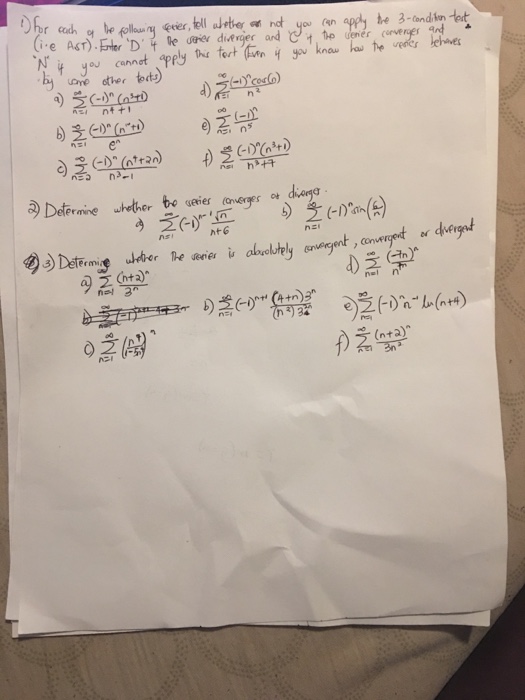 1) For each of the following series, tell whether or not you can apply the 3-condition test
(i.e AST). Enter 'D' if the series diverges and 'C' if the series converges and
'N' if you cannot apply this test (Even if you know how the series behaves
by some other tests)
a) ∑_{n=1}^{∞} (-1)^n (n^3+1) / n^4+1
d) ∑_{n=1}^{∞} (-1)^n cos(n) / n^2
b) ∑_{n=1}^{∞} (-1)^n (n^n+1) / e^n
e) ∑_{n=1}^{∞} (-1)^n / n^5
c) ∑_{n=2}^{∞} (-1)^n (n^4+2n) / n^3-1
f) ∑_{n=1}^{∞} (-1)^n (n^3+1) / n^3+7
2) Determine whether the series converges or diverges.
a) ∑_{n=1}^{∞} (-1)^{n-1} √n / n+6
b) ∑_{n=1}^{∞} (-1)^n sin(6/n)
3) Determine whether the series is absolutely convergent, convergent or divergent
a) ∑_{n=1}^{∞} (n+2)^n / 3^n
d) ∑_{n=1}^{∞} (-7n)^n
b) ∑_{n=1}^{∞} (-1)^{n+1} (4+n)3^n / (n^2)
e) ∑_{n=1}^{∞} (-1)^n n^{-1} ln(n+4)
c) ∑_{n=1}^{∞}
f) ∑_{n=1}^{∞} (n+2)^n / 3n^2